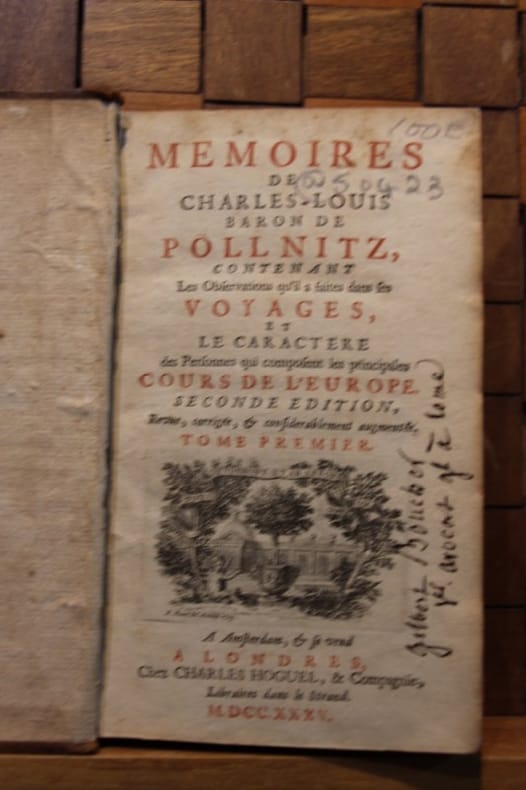 100E
@50423
MEMOIRES
DE
CHARLES-LOUIS
BARON DE
POLLNITZ,
CONTENANT
Les Observations qu'il a faites dans ses
VOYAGES,
ET
LE CARACTERE
des Personnes qui composent les principales
COURS DE L'EUROPE.
SECONDE EDITION,
Revue, corrigée, & considerablement augmentée.
TOME PREMIER.
A Amsterdam, & se vend
A LONDRES,
Chez CHARLES HOGUEL, & Compagnie,
Libraires dans le Strand.
M.DCC.XXXV.
gilbert Boucher
avocat gl à